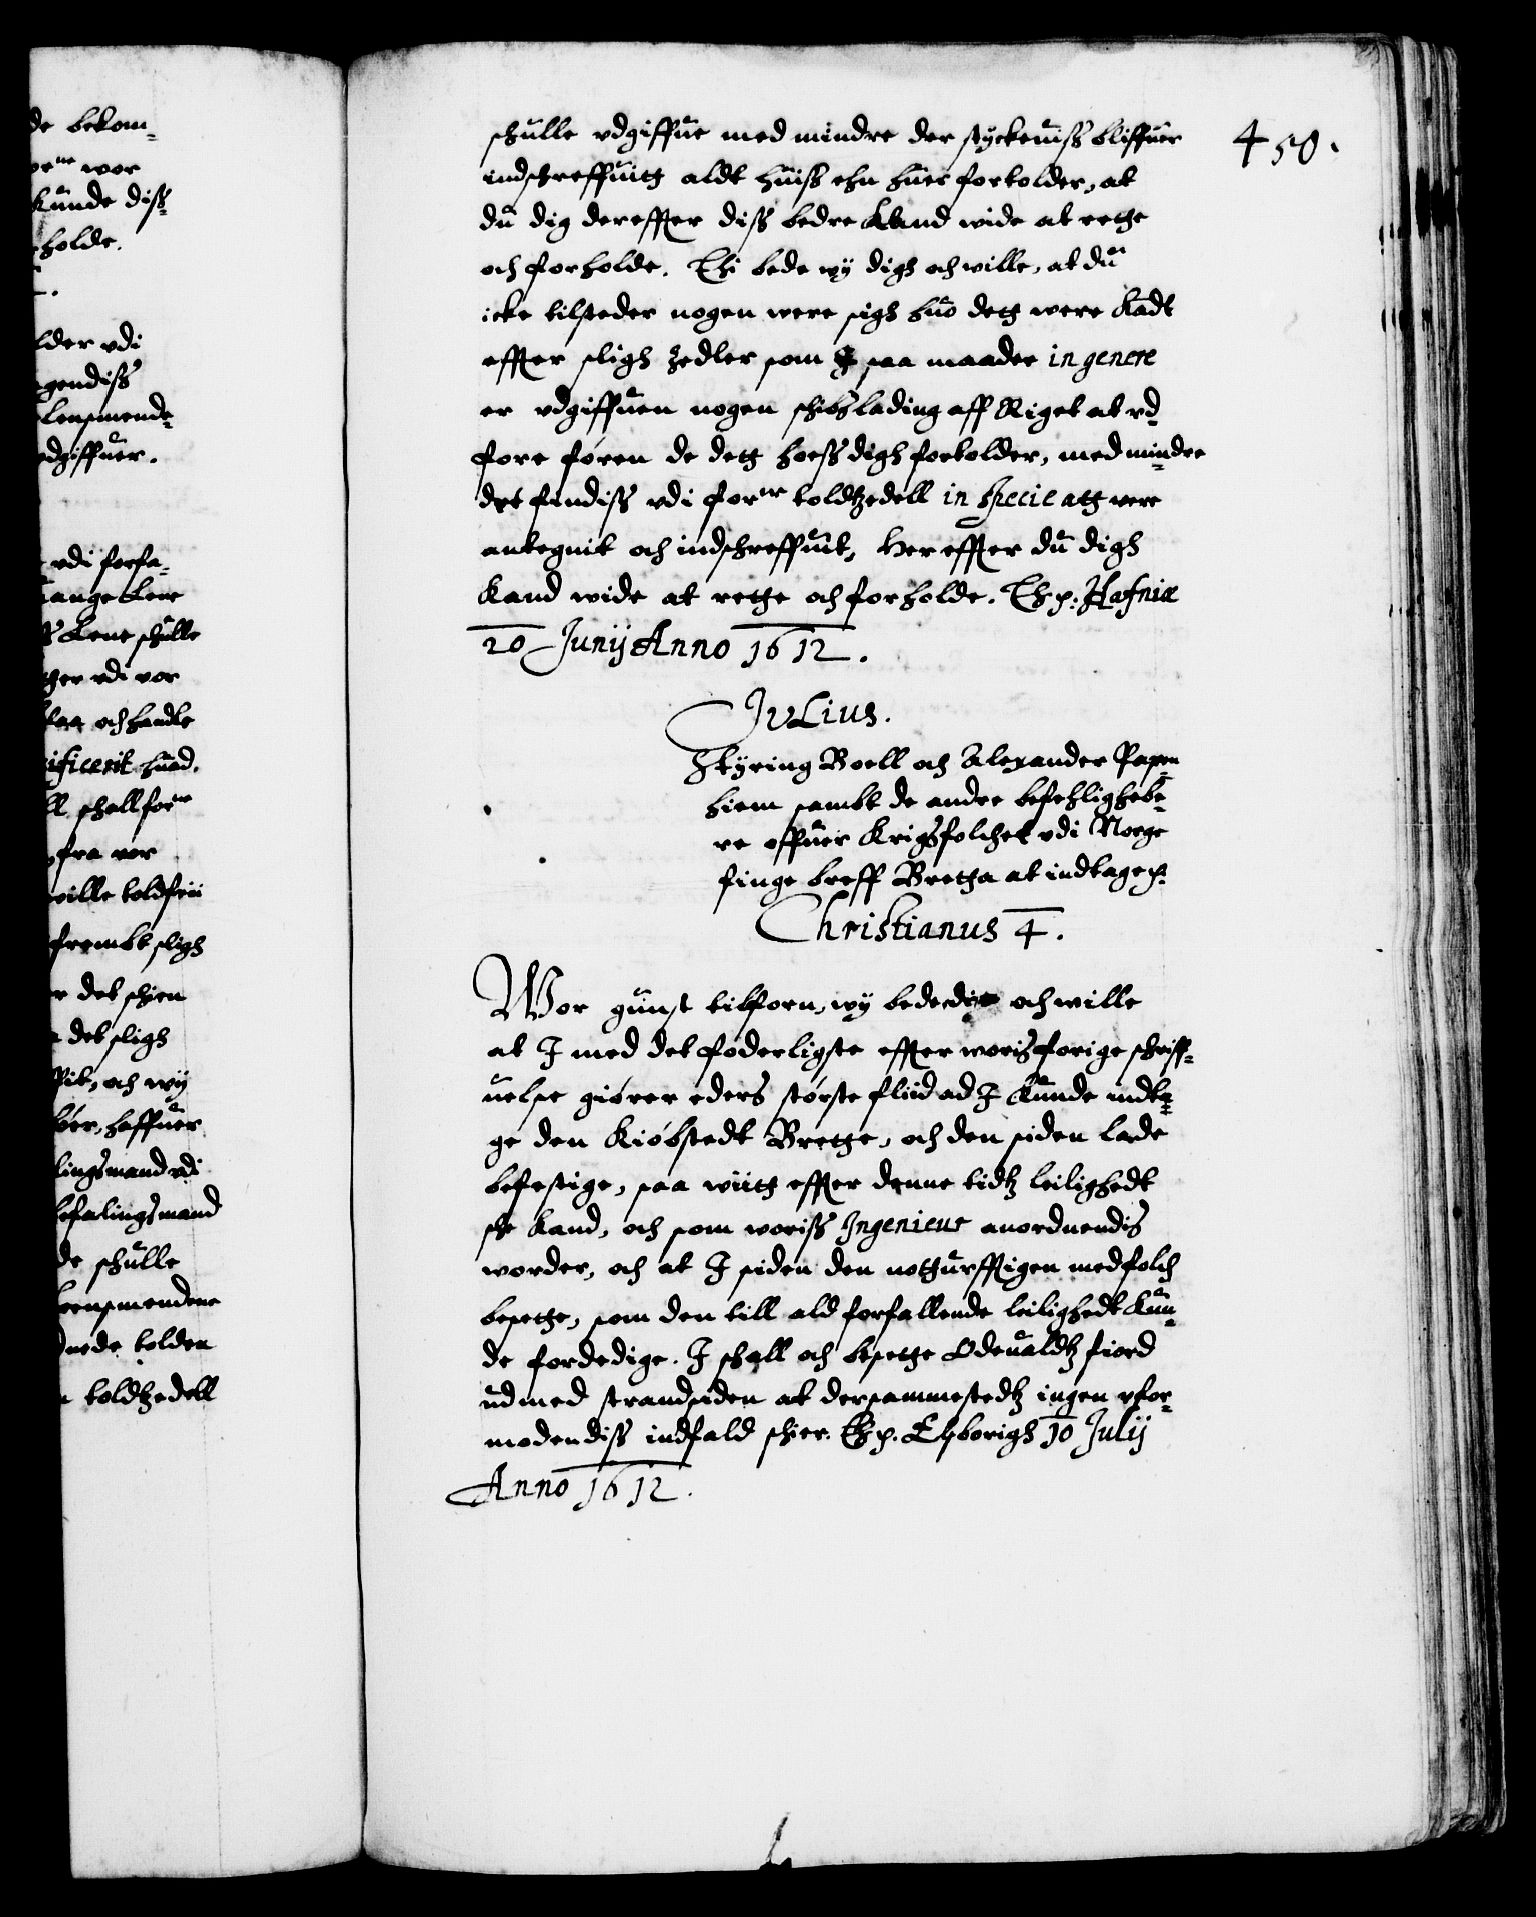 de bekom-
wor
kunde diss-
holde.
lder udi
gendiss
Lensmende-
udgiffuer.
udi forfa-
mange Lene
Lene schulle
udi vor
staa och handle
ificerit huad
schall forne
fra vor
wille toldfrii
frembt sligh
det schien
det sligh
och wij
haffuer
lingsmand udi
befalingsmand
de schulle
Leensmendene
nede tolden
toldtzedell
450.
schulle udgiffue med mindre der styckeuiss bliffuer
indschreffuitt aldt huiss ehn huer fortolder, at
du dig dereffter diss bedre Kand wide at rette
och forholde. Thi bede wij digh och wille, at du
icke tilsteder nogen were sigh huo dett were Kadt
effter sligh Zedler som saa maader in genere
er udgiffuen nogen schibs lading aff Riget at ud-
føre føren de dett hoess digh fortolder, med mindre
det findiss udi forne toldtzedell in specie att vere
antegnit och indschreffuit, Her effter du digh
Kand wide at rette och forholde. Ex p: Hafniæ
20 Junij Anno 1612.
Julius.
Styring Boell och Alexander Papen-
hiem sambt de andre befehlighebe-
re offuer Krigsfolchet udi Norge
finge breff Bretta at indtage p:
Christianus 4.
Wor gunst tilforn, wij bede och wille
at I med det foderligste effter woris forige schriff-
uelse giører eders største fliid ad I Kunde indta-
ge den Kiøbstedt Brette, och den siden lade
befestige, saa wiitt effter denne tidtz leilighedt
sche Kand, och som woriss Ingenieur anordnendis
worder, och at I siden den nottürfftigen med folch
besette, som den till ald forfallende leilighedt Kun-
de fordedige. I schall och besette Odeualdtz fiord
ud med strandsiden at dersammestedtz ingen ufor-
modendiss indfald schier. Ex p. Elsborigh 10 Julij
Anno 1612.